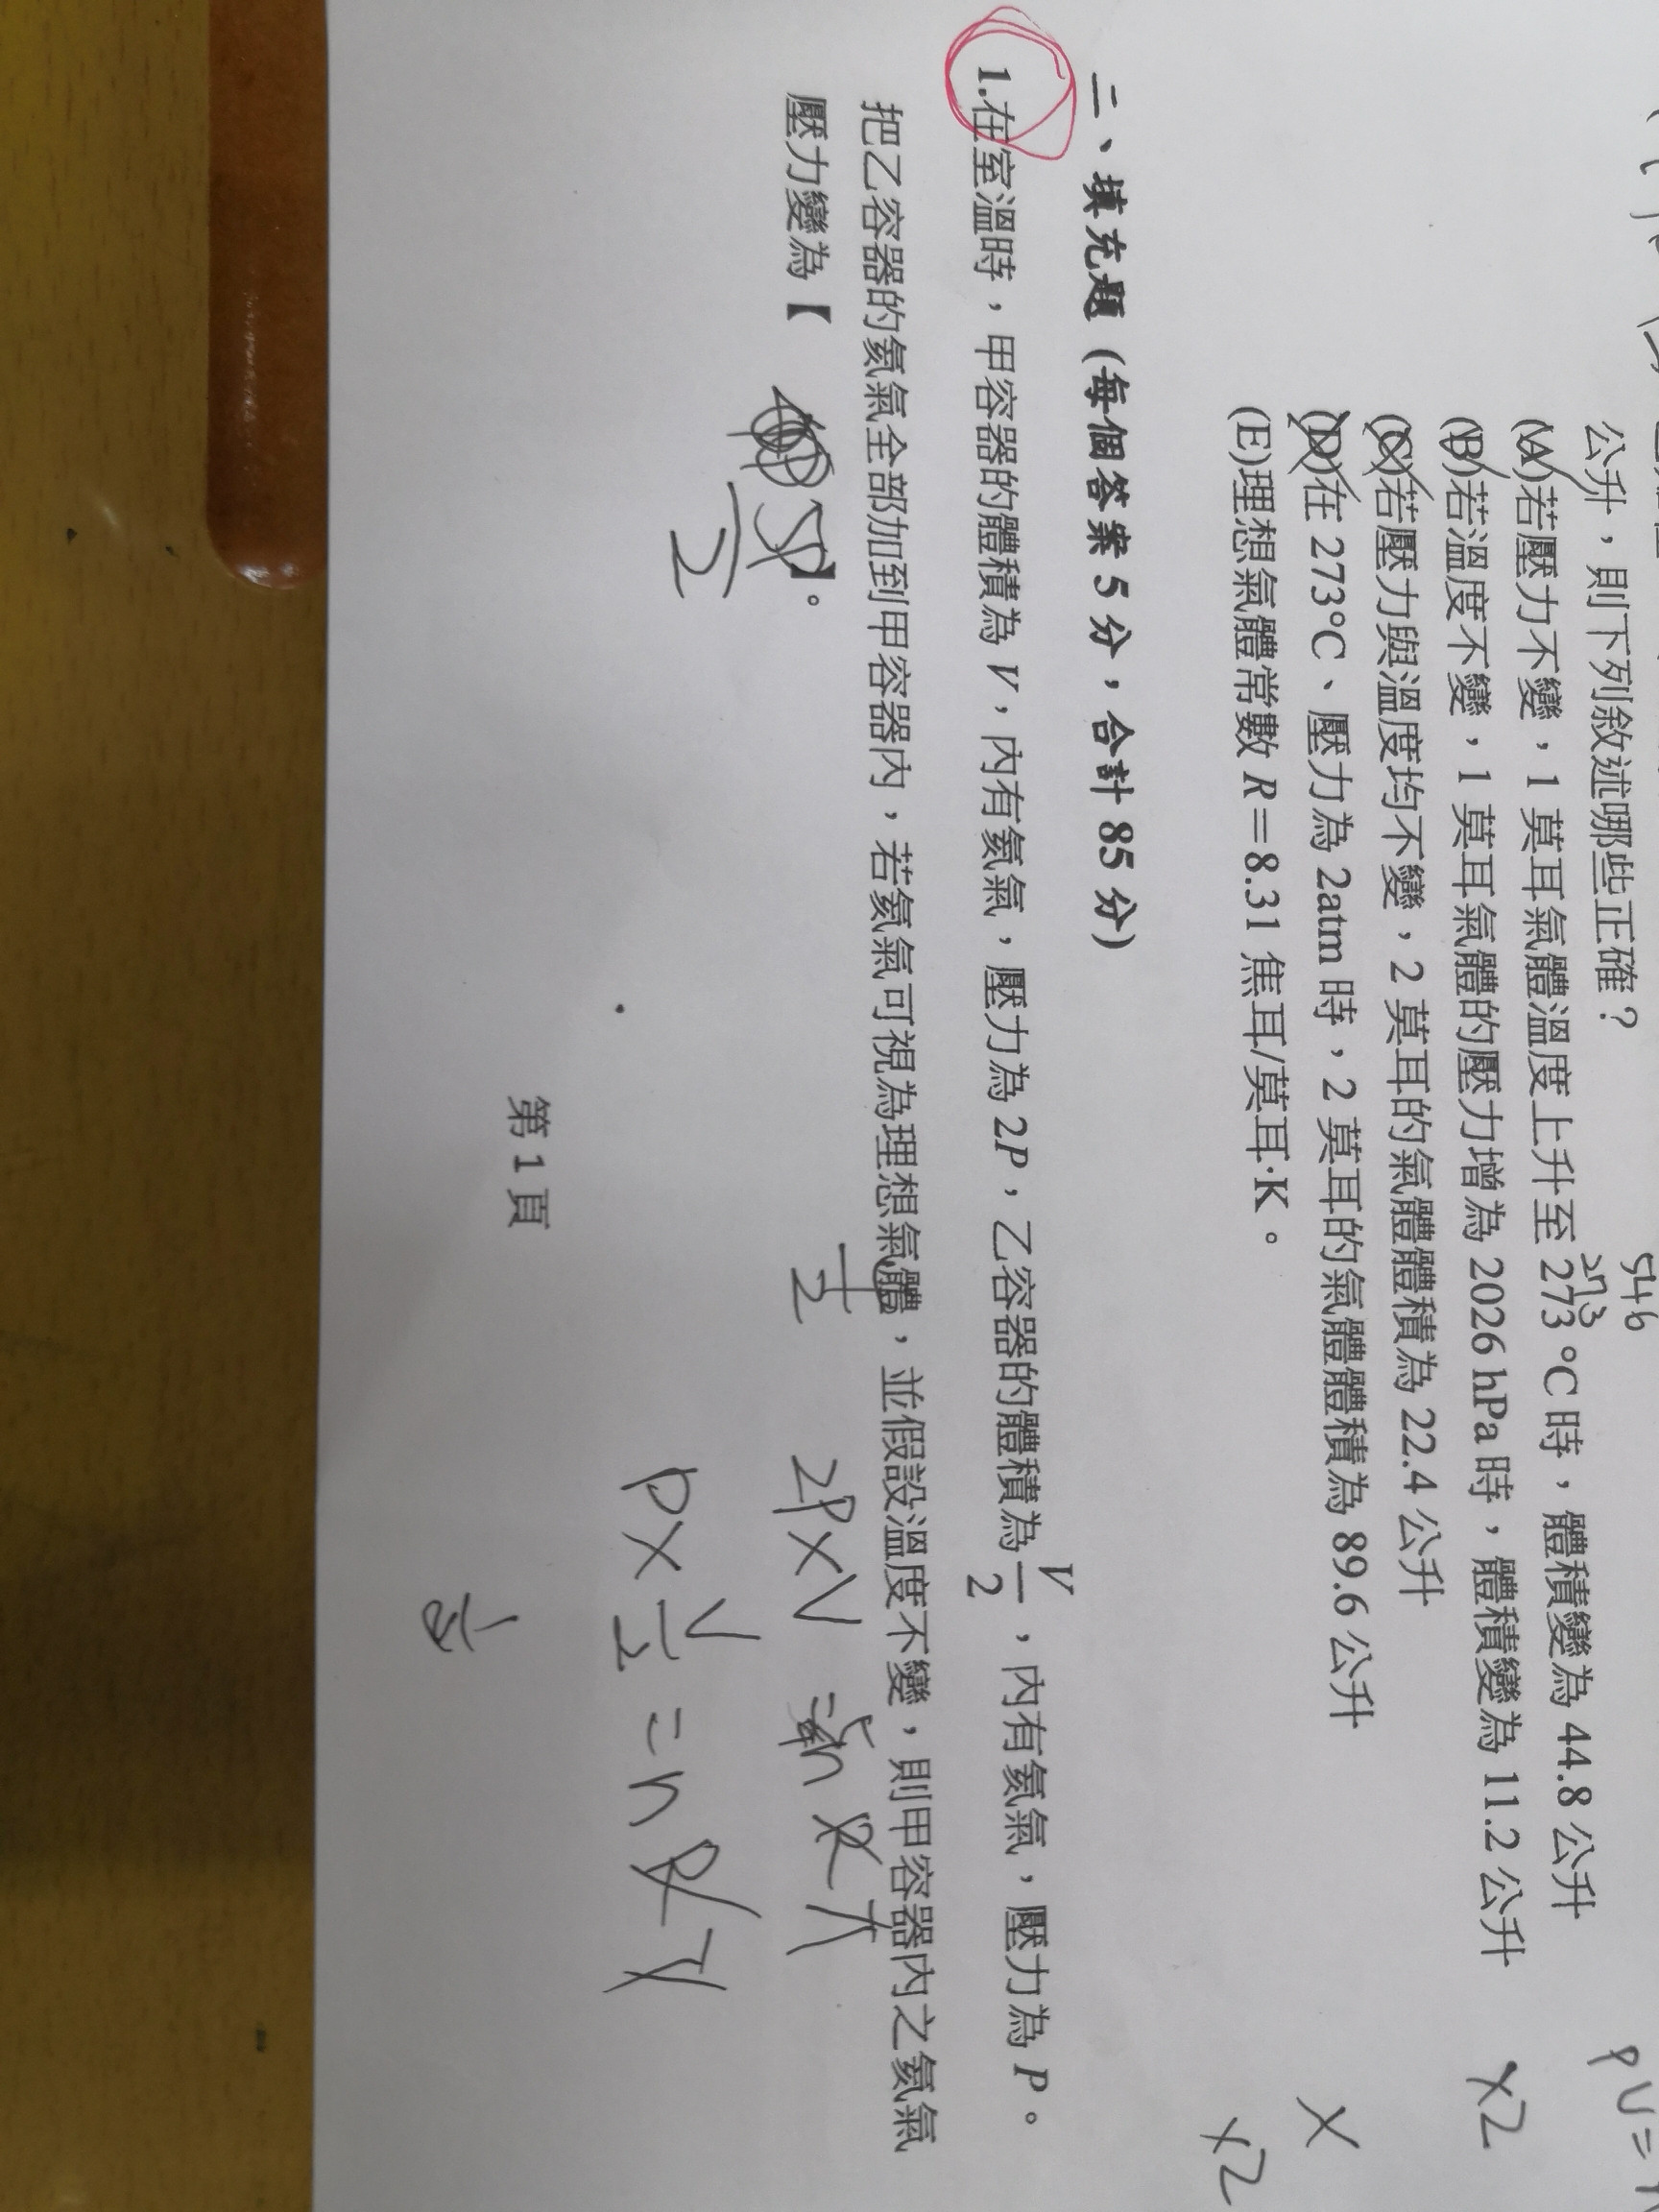 公升，則下列敘述哪些正確？
546
273
(A)若壓力不變，1 莫耳氣體溫度上升至 273 ℃ 時，體積變為 44.8 公升
PV=
(B)若溫度不變，1 莫耳氣體的壓力增為 2026 hPa 時，體積變為 11.2 公升
×2
(C)若壓力與溫度均不變，2 莫耳的氣體體積為 22.4 公升
(D)在 273℃、壓力為 2atm 時，2 莫耳的氣體體積為 89.6 公升
×
(E)理想氣體常數 R＝8.31 焦耳/莫耳·K。
×2
二、填充題 (每個答案 5 分，合計 85 分)
1.在室溫時，甲容器的體積為 V，內有氦氣，壓力為 2P，乙容器的體積為 V/2，內有氦氣，壓力為 P。
把乙容器的氦氣全部加到甲容器內，若氦氣可視為理想氣體，並假設溫度不變，則甲容器內之氦氣
壓力變為【 5P/2 】。
1/2
2P×V = n R T
P× V/2 = n R T
第 1 頁